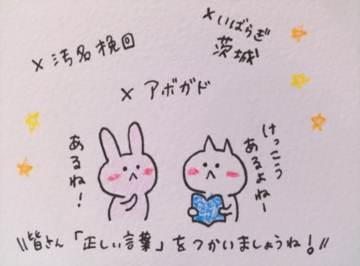 ×いばらぎ
茨城
×汚名挽回
×アボガド
あるね!
けっこう
あるよねー
\\皆さん「正しい言葉」をつかいましょうね!//